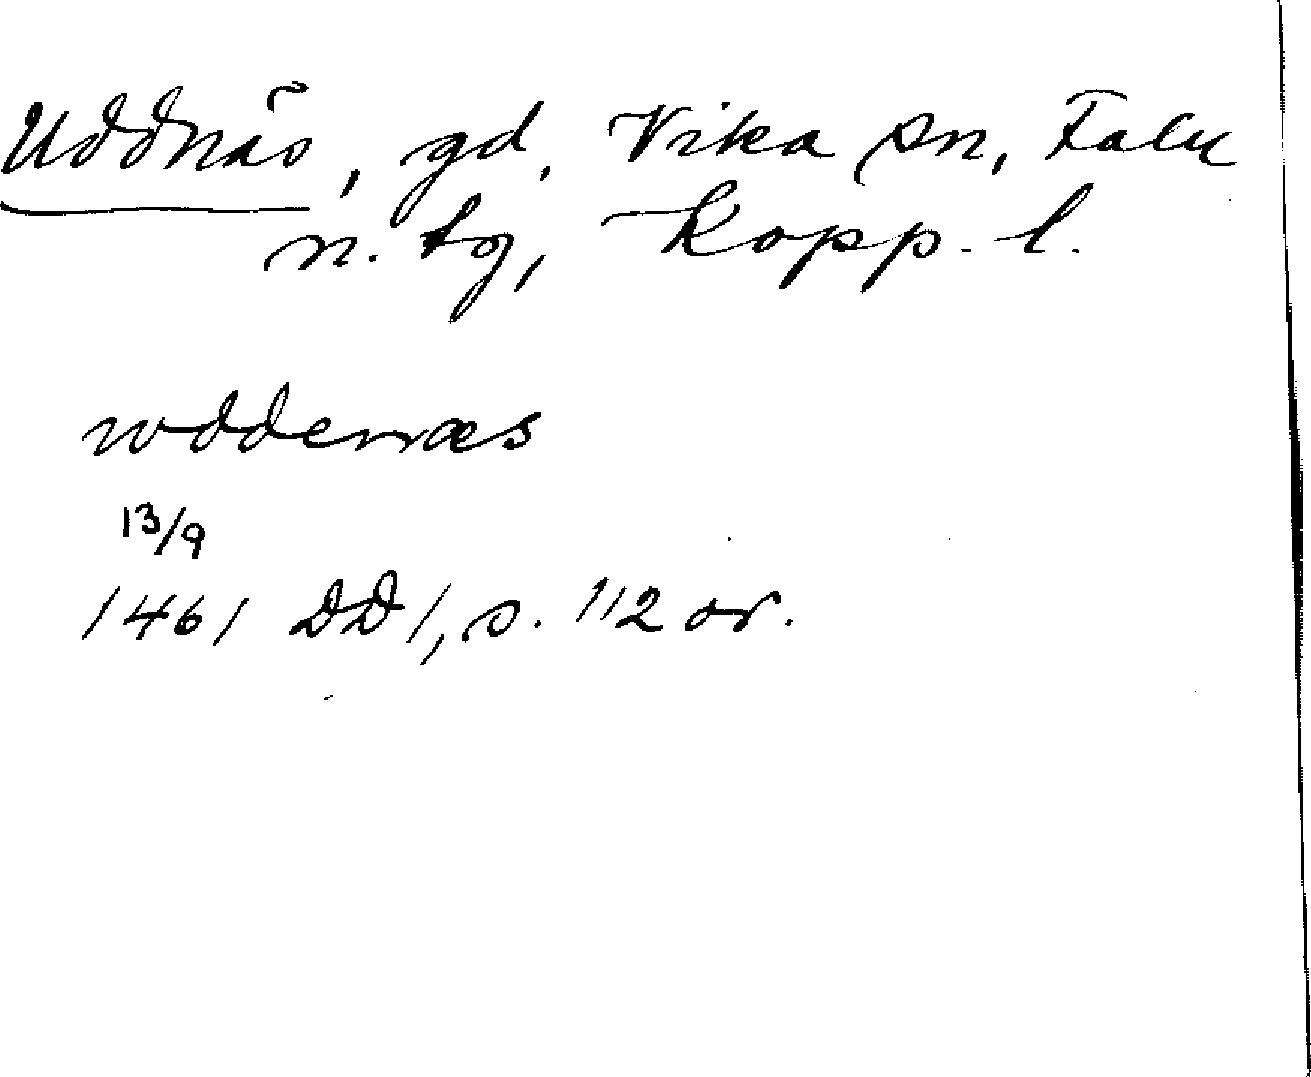 Uddnäs, gd, Vika sn, Falu
n. tg, Kopp. l.
wddenæs
13/9
1461 DD 1, s. 112 or.